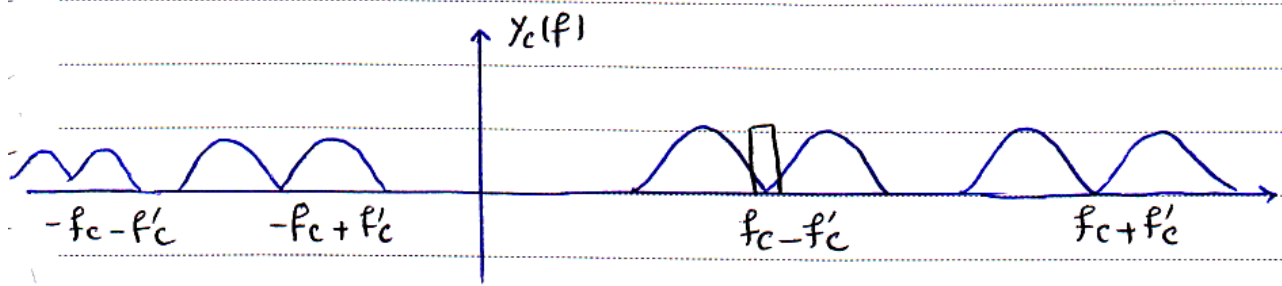 Yc(f)
-fc-f'c -fc+f'c fc-f'c fc+f'c